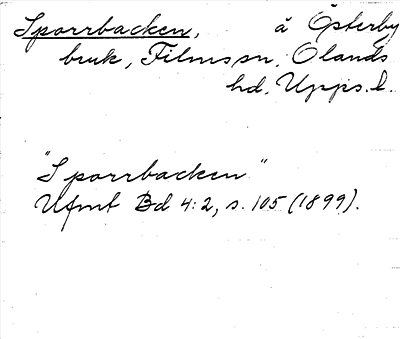 Sporrbacken, å Österby
bruk, Films sn. Olands
hd, Upps. l.
"Sporrbacken"
Ufmt Bd 4:2, s. 105 (1899).